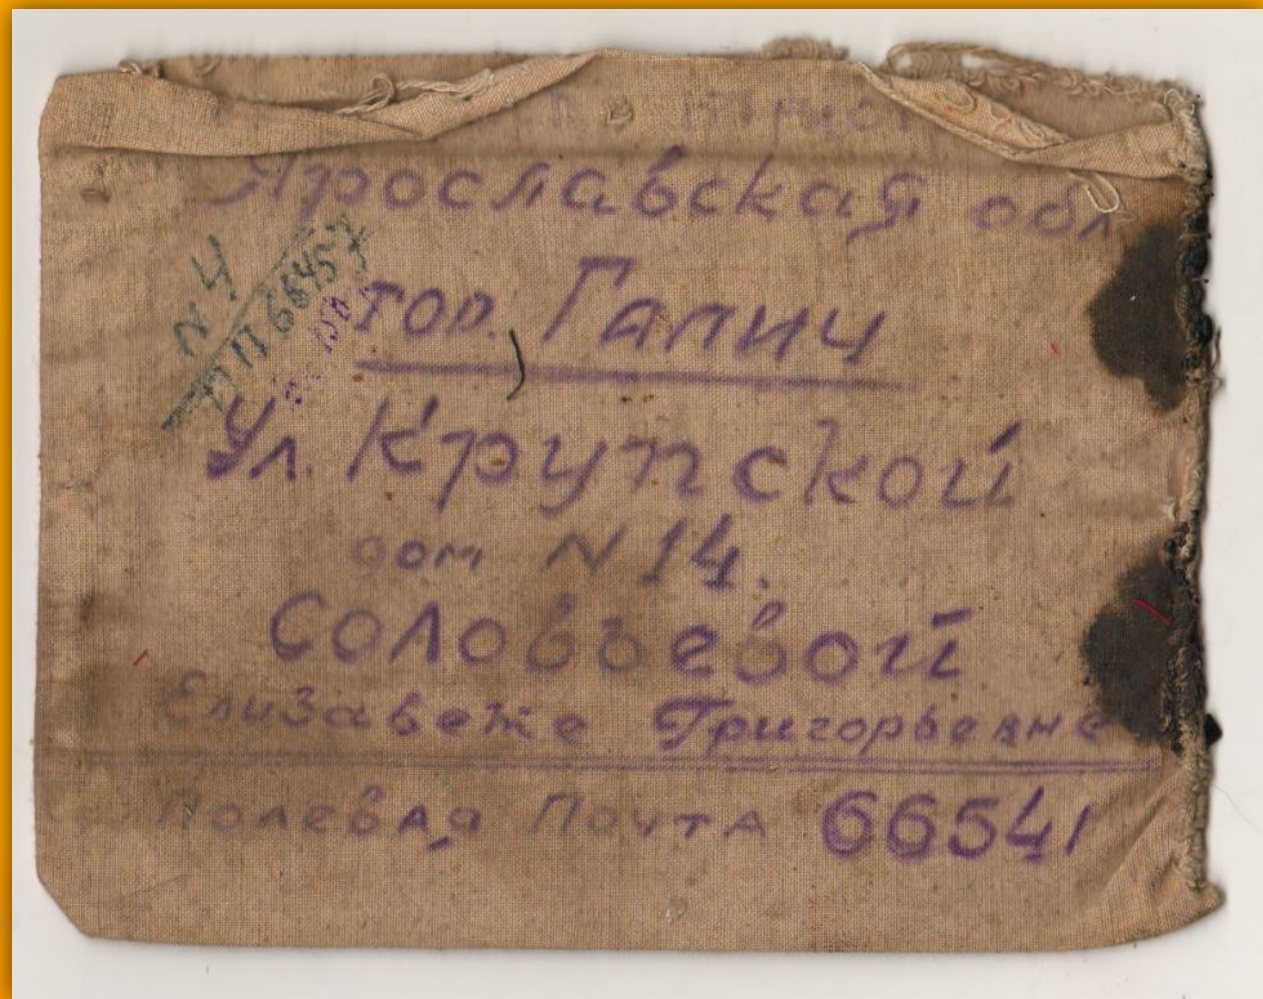 Ярославская обл
гор. Галич
N 4
ПП 66457
Ул. Крупской
дом N 14.
Соловьевой
Елизавеже Григорьевне
Полевая Почта 66541